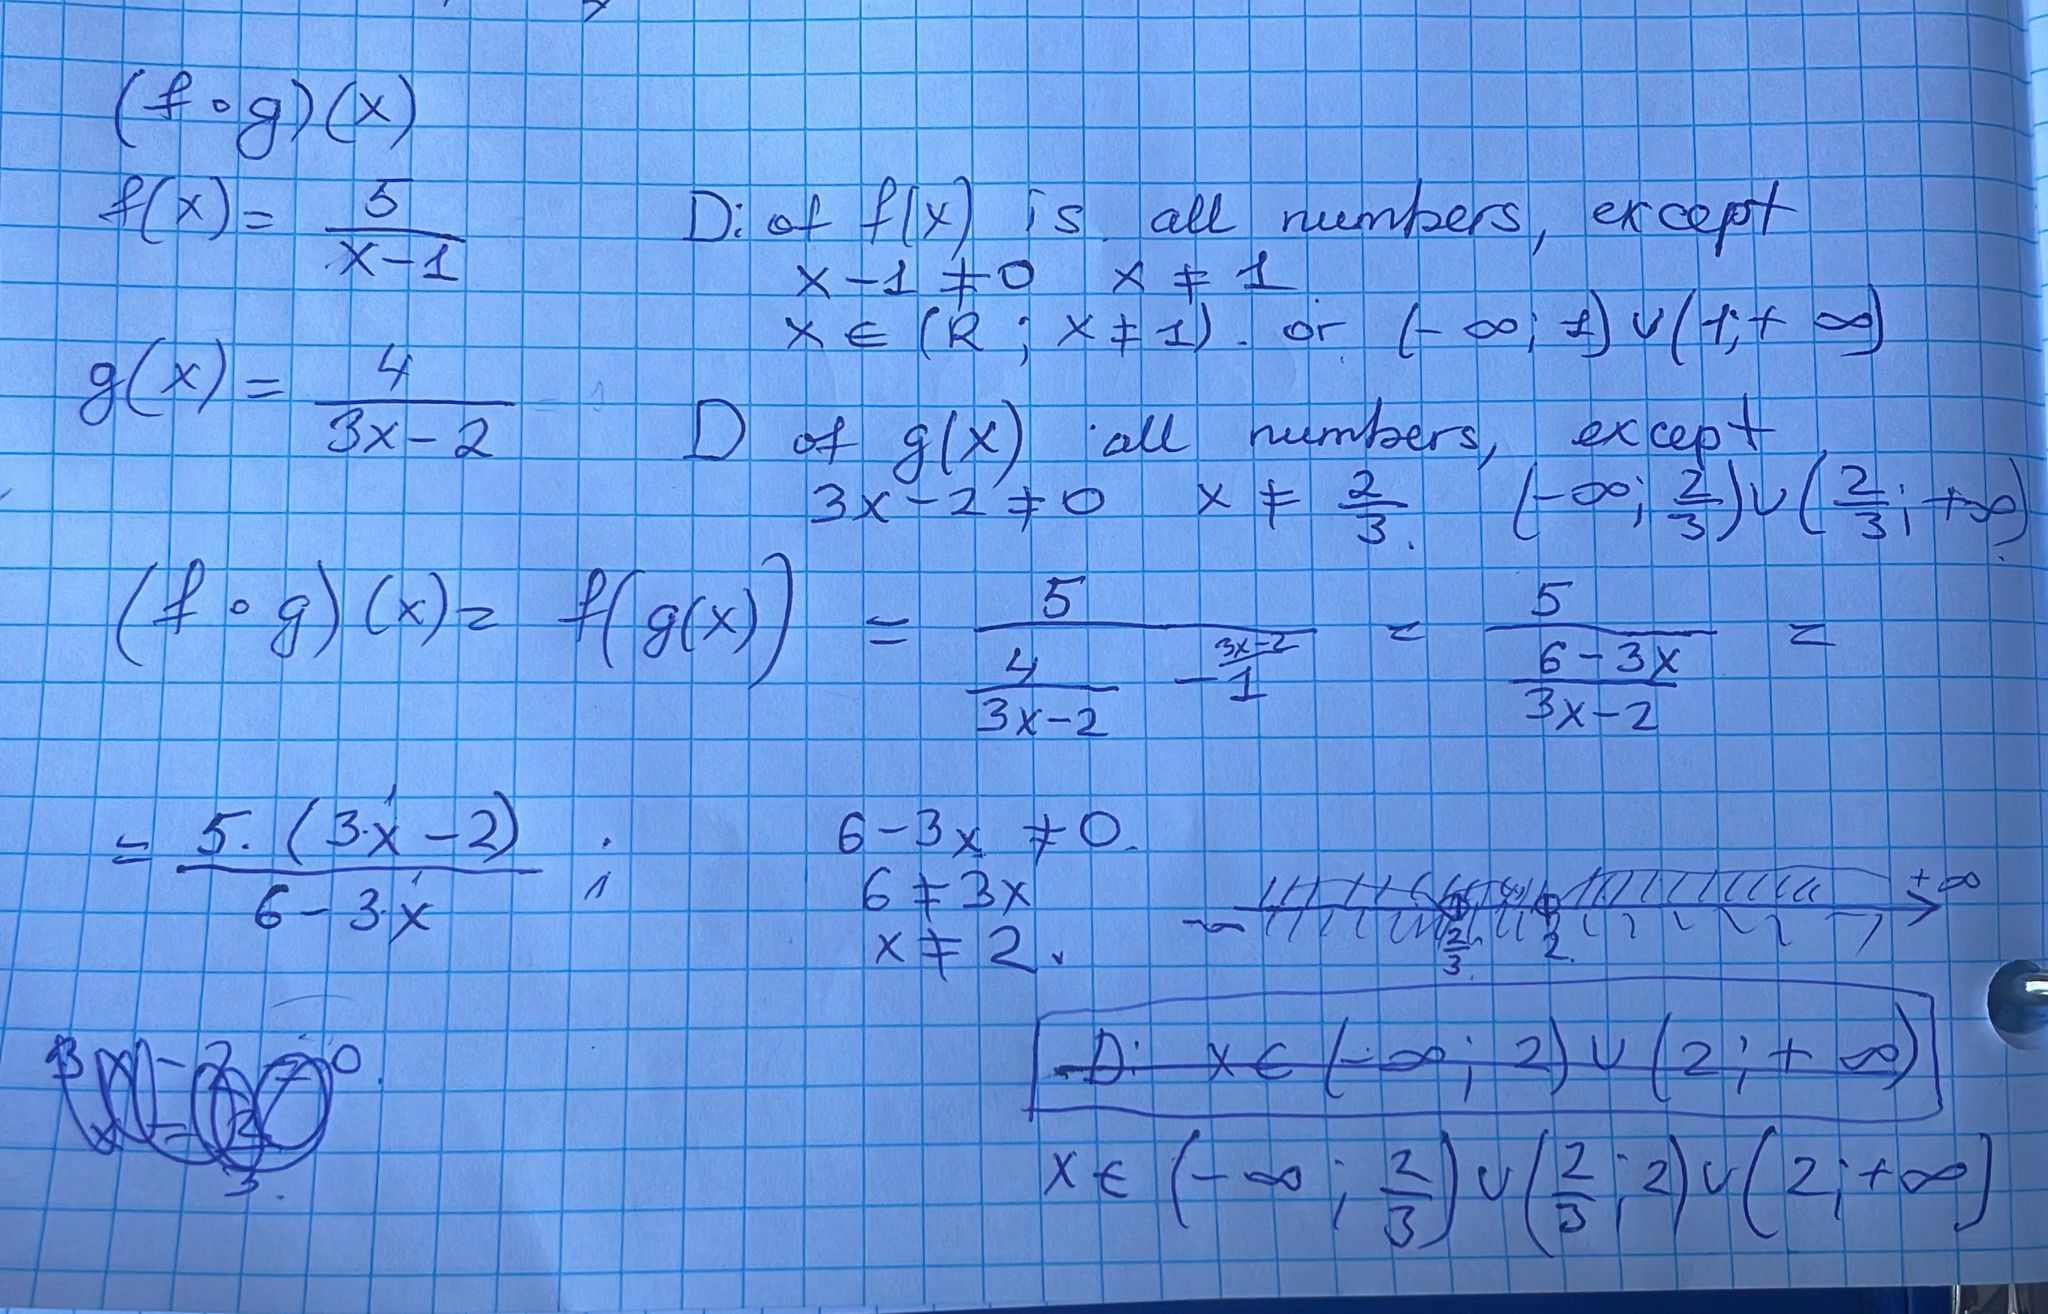 (f∘g)(x)
f(x) = 5/(x-1)
D: of f(x) is all numbers, except
x-1 ≠ 0 x ≠ 1
x ∈ (R ; x ≠ 1). or (-∞; 1) ∪ (1; +∞)
g(x) = 4/(3x-2)
D of g(x) all numbers, except
3x-2 ≠ 0 x ≠ 2/3. (-∞; 2/3) ∪ (2/3; +∞)
(f∘g)(x) = f(g(x)) = 5/(4/(3x-2) - 1^(3x-2)) = 5/((6-3x)/(3x-2)) =
= 5·(3·x-2)/(6-3·x) ;
6-3x ≠ 0.
6 ≠ 3x
x ≠ 2.
-∞ 2/3. 2. +∞
D: x ∈ (-∞; 2) ∪ (2; +∞)
x ∈ (-∞; 2/3) ∪ (2/3; 2) ∪ (2; +∞)